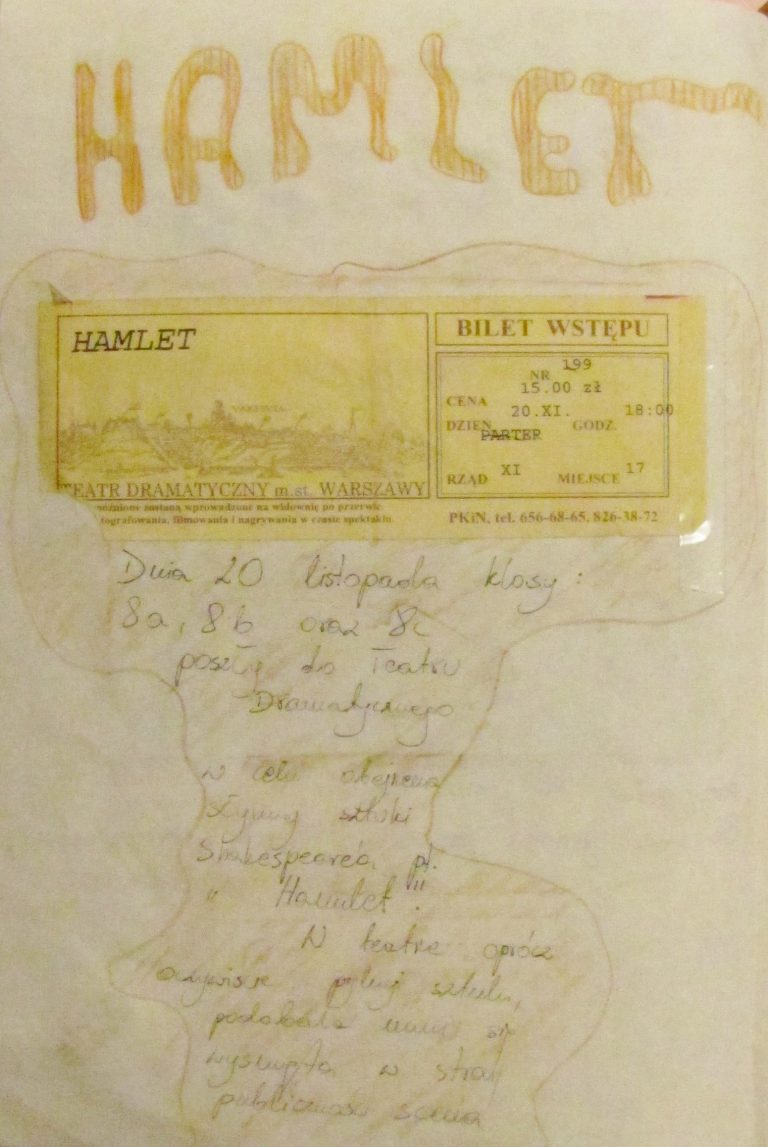 HAMLET
HAMLET
BILET WSTĘPU
NR 199
CENA 15.00 zł
DZIEŃ 20.XI. GODZ. 18:00
PARTER
RZĄD XI MIEJSCE 17
WARSZAWA
TEATR DRAMATYCZNY m.st. WARSZAWY
zostaną wprowadzone na widownię po przerwie
fotografowania, filmowania i nagrywania w czasie spektaklu
PKiN, tel. 656-68-65, 826-38-72
Dnia 20 listopada klasy:
8a, 8b oraz 8c
poszły do Teatru
Dramatycznego
w celu obejrzenia
sztuki
Shakespeare'a pt.
"Hamlet".
W teatrze oprócz
oczywiście sztuki,
podobała mi się
wysunięta w stronę
publiczności scena